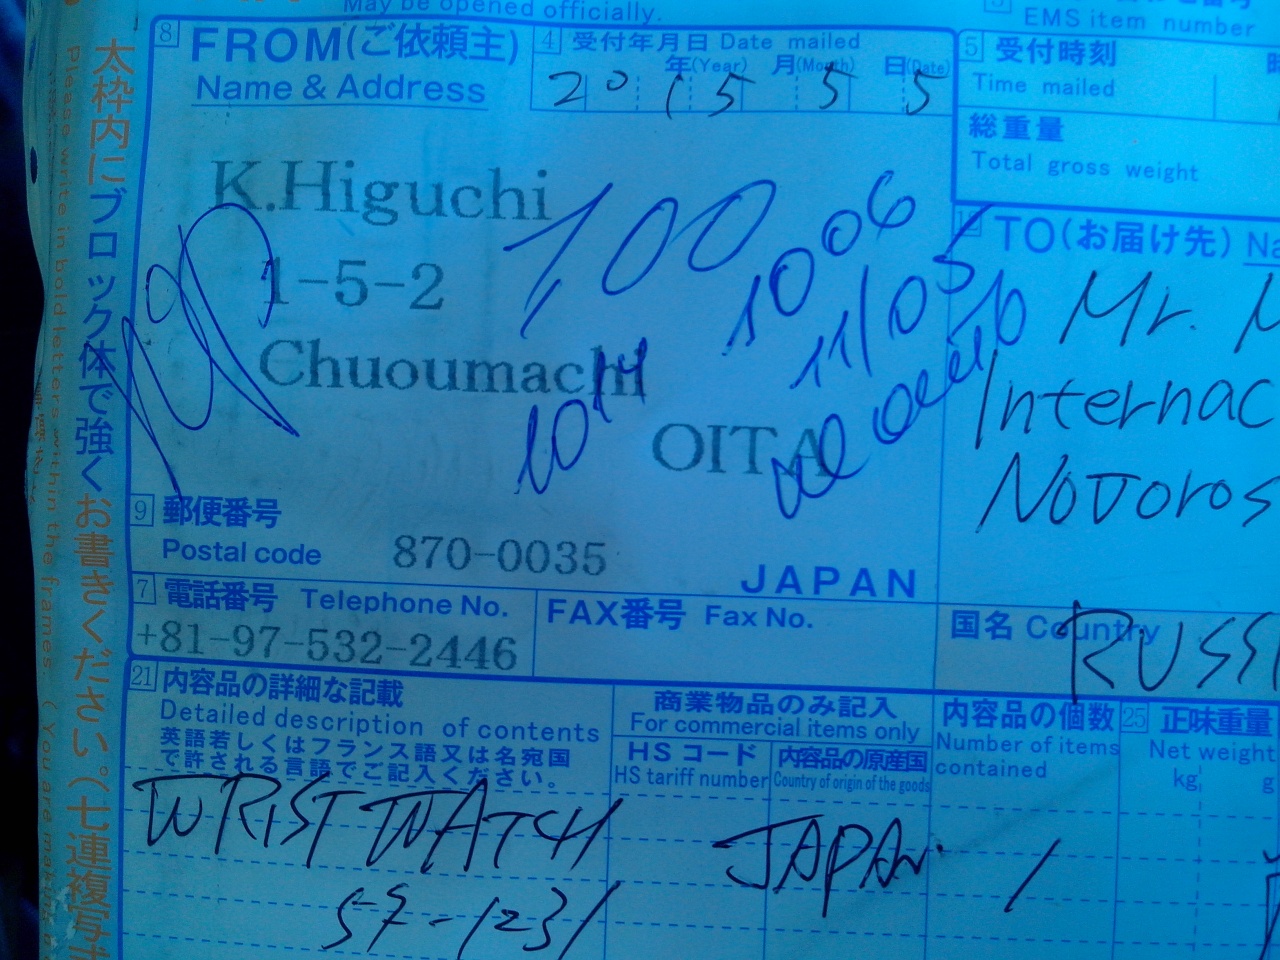 May be opened officially.
EMS item number
8 FROM(ご依頼主)
Name & Address
4 受付年月日 Date mailed
年(Year) 月(Month) 日(Date)
2015 5 5
5 受付時刻
Time mailed
総重量
Total gross weight
K.Higuchi
1-5-2
Chuoumachi
OITA
100
1006
11/05
1014
9 郵便番号
Postal code 870-0035
JAPAN
TO(お届け先)
Mr.
Internac
Novoros
7 電話番号 Telephone No.
+81-97-532-2446
FAX番号 Fax No.
国名 Country
RUSSI
21 内容品の詳細な記載
Detailed description of contents
英語若しくはフランス語又は名宛国
で許される言語でご記入ください。
商業物品のみ記入
For commercial items only
HS コード
HS tariff number
内容品の原産国
Country of origin of the goods
内容品の個数
Number of items
contained
25 正味重量
Net weight
kg g
WRIST WATCH JAPAN 1
59-1231
太枠内にブロック体で強くお書きください。(七連複写
Please write in bold letters within the frames. (You are making